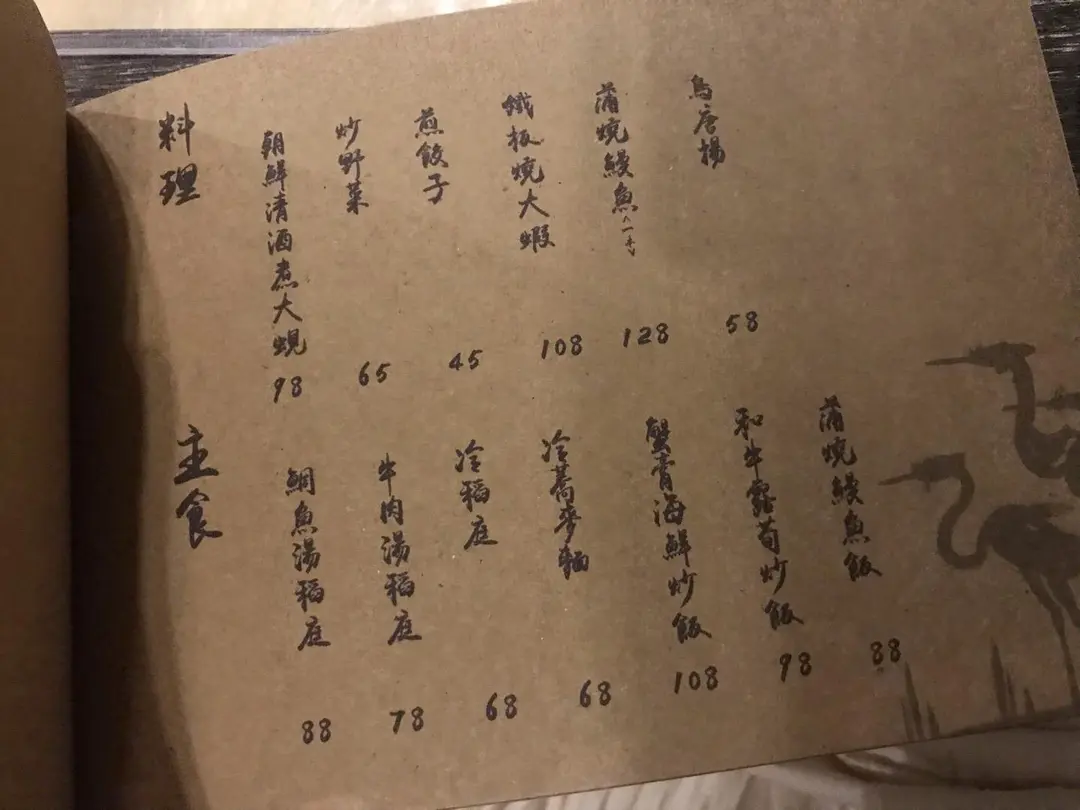 料理
朝鮮清酒煮大蜆 98
炒野菜 65
煎餃子 45
鐵板燒大蝦 108
蒲燒鰻魚(一本) 128
鳥唐揚 58
主食
鯛魚湯稻庭 88
牛肉湯稻庭 78
冷稻庭 68
冷蕎麥麵 68
蟹膏海鮮炒飯 108
和牛露荀炒飯 98
蒲燒鰻魚飯 88